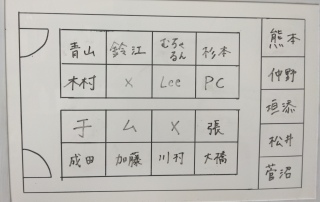 青山 鈴江 むちゃるん 杉本 熊本
木村 × Lee PC 仲野
垣添
于 ム × 張 松井
成田 加藤 川村 大橋 菅沼